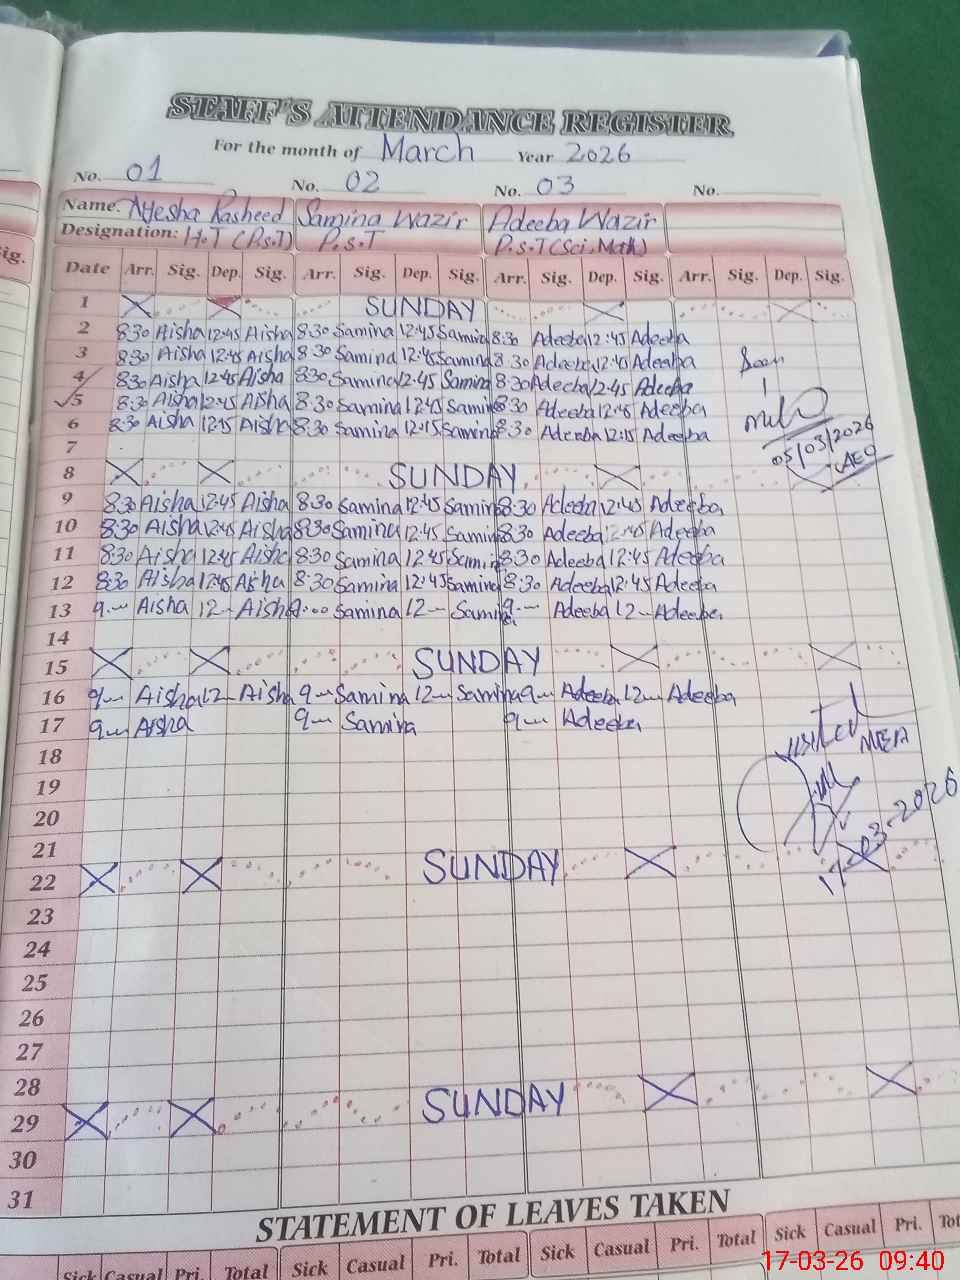 STAFF'S ATTENDANCE REGISTER
For the month of March Year 2026
No. 01 No. 02 No. 03 No.
Name. Ayesha Rasheed Samina Wazir Adeeba Wazir
Designation: H.T (P.S.T) P.S.T P.S.T (Sci, Math)
Date Arr. Sig. Dep. Sig. Arr. Sig. Dep. Sig. Arr Sig. Dep. Sig. Arr. Sig. Dep. Sig.
1 SUNDAY
2 8:30 Aisha 12:45 Aisha 8:30 Samina 12:45 Samina 8:30 Adeeba 12:45 Adeeba
3 8:30 Aisha 12:45 Aisha 8:30 Samina 12:45 Samina 8:30 Adeeba 12:45 Adeeba
4 8:30 Aisha 12:45 Aisha 8:30 Samina 12:45 Samina 8:30 Adeeba 12:45 Adeeba
5 8:30 Aisha 12:45 Aisha 8:30 Samina 12:45 Samina 8:30 Adeeba 12:45 Adeeba
6 8:30 Aisha 12:15 Aisha 8:30 Samina 12:15 Samina 8:30 Adeeba 12:15 Adeeba
Seen
05/03/2026
AEO
7
8 SUNDAY
9 8:30 Aisha 12:45 Aisha 8:30 Samina 12:45 Samina 8:30 Adeeba 12:45 Adeeba
10 8:30 Aisha 12:45 Aisha 8:30 Samina 12:45 Samina 8:30 Adeeba 12:45 Adeeba
11 8:30 Aisha 12:45 Aisha 8:30 Samina 12:45 Samina 8:30 Adeeba 12:45 Adeeba
12 8:30 Aisha 12:45 Aisha 8:30 Samina 12:45 Samina 8:30 Adeeba 12:45 Adeeba
13 9:-- Aisha 12-- Aisha 9:00 Samina 12-- Samina 9:-- Adeeba 12-- Adeeba
14
15 SUNDAY
16 9-- Aisha 12-- Aisha 9-- Samina 12-- Samina 9-- Adeeba 12-- Adeeba
17 9-- Aisha 9-- Samina 9-- Adeeba
visited
MEA
17-03-2026
18
19
20
21
22 SUNDAY
23
24
25
26
27
28
29 SUNDAY
30
31
STATEMENT OF LEAVES TAKEN
Sick Casual Pri. Total Sick Casual Pri. Total Sick Casual Pri. Total Sick Casual Pri.
17-03-26 09:40